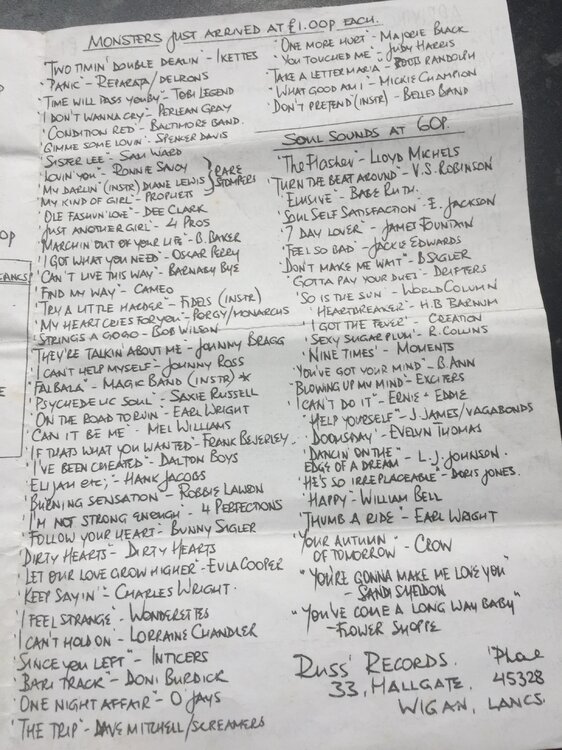 MONSTERS JUST ARRIVED AT £1.00P EACH.
'TWO TIMIN' DOUBLE DEALIN' - IKETTES
"PANIC" - REPARATA/DELRONS
'TIME WILL PASS YOU BY' - TOBI LEGEND
'I DON'T WANNA CRY' - PERLEAN GRAY
'CONDITION RED' - BALTIMORE BAND.
GIMME SOME LOVIN' - SPENCER DAVIS
SISTER LEE' - SAM WARD
LOVIN' YOU' - RONNIE SAVOY
MY DARLIN' (INSTR) DIANE LEWIS } RARE
'MY KIND OF GIRL' - PROPHETS STOMPERS
OLE FASHUN 'LOVE' - DEE CLARK
'JUST ANOTHER GIRL' - 4 PROS
MARCHIN OUT OF YOUR LIFE' - B. BAKER
'I GOT WHAT YOU NEED' - OSCAR PERRY
'CAN'T LIVE THIS WAY' - BARNABY BYE
'FIND MY WAY' - CAMEO
'TRY A LITTLE HARDER' - FIDELS (INSTR)
'MY HEART CRIES FOR YOU' - PORGY/MONARCHS
STRINGS A GOGO - BOB WILSON
'THEY'RE TALKIN' ABOUT ME' - JOHNNY BRAGG
'I CAN'T HELP MYSELF' - JOHNNY ROSS
'FALBALA' - MAGIC BAND (INSTR) *
'PSYCHEDELIC SOUL' - SAXIE RUSSELL
'ON THE ROAD TO RUIN' - EARL WRIGHT
'CAN IT BE ME' - MEL WILLIAMS
'IF THATS WHAT YOU WANTED' - FRANK BEVERLEY..
'I'VE BEEN CHEATED' - DALTON BOYS
'ELIJAH ETC;' - HANK JACOBS
'BURNING SENSATION' - ROBBIE LAWSON
'I'M NOT STRONG ENOUGH' - 4 PERFECTIONS
'FOLLOW YOUR HEART' - BUNNY SIGLER
'DIRTY HEARTS' - DIRTY HEARTS
'LET OUR LOVE GROW HIGHER' - EULA COOPER
'KEEP SAYIN'' - CHARLES WRIGHT.
'I FEEL STRANGE' - WONDERETTES
'I CAN'T HOLD ON' - LORRAINE CHANDLER
'SINCE YOU LEFT' - INTICERS
'BARI TRACK' - DONI BURDICK
'ONE NIGHT AFFAIR' - O'JAYS
'THE TRIP' - DAVE MITCHELL/SCREAMERS
'ONE MORE HURT' - MARJORIE BLACK
'YOU TOUCHED ME' - JUDY HARRIS
TAKE A LETTER MARIA' - BOOTS RANDOLPH
'WHAT GOOD AM I' - MICKIE CHAMPION
DON'T PRETEND' (INSTR) - BELLES BAND
SOUL SOUNDS AT 60P.
'THE FLASHER' - LLOYD MICHELS
TURN THE BEAT AROUND' - V.S. ROBINSON
'ELUSIVE' - BABE RUTH.
'SOUL SELF SATISFACTION' - E. JACKSON
'7 DAY LOVER' - JAMES FOUNTAIN
'FEEL SO BAD' - JACKIE EDWARDS
DON'T MAKE ME WAIT' - B SIGLER
'GOTTA PAY YOUR DUES' - DRIFTERS
'SO IS THE SUN' - WORLD COLUMN
'HEARTBREAKER' - H.B. BARNUM
'I GOT THE FEVER' - CREATION
'SEXY SUGAR PLUM' - R. COLLINS
'NINE TIMES' - MOMENTS
'YOU'VE GOT YOUR MIND' - B. ANN
'BLOWING UP MY MIND' - EXCITERS
'I CAN'T DO IT' - ERNIE + EDDIE
'HELP YOURSELF' - J. JAMES/VAGABONDS
'DOOMSDAY' - EVELYN THOMAS
'DANCIN' ON THE
EDGE OF A DREAM' - L.J. JOHNSON.
'HE'S SO IRREPLACEABLE' - DORIS JONES.
'HAPPY' - WILLIAM BELL
'THUMB A RIDE' - EARL WRIGHT
'YOUR AUTUMN
OF TOMORROW' - CROW
"YOU'RE GONNA MAKE ME LOVE YOU"
- SANDI SHELDON
"YOU'VE COME A LONG WAY BABY"
- FLOWER SHOPPE
RUSS' RECORDS. 'Phone
33, HALLGATE, 45328
WIGAN, LANCS.
OP